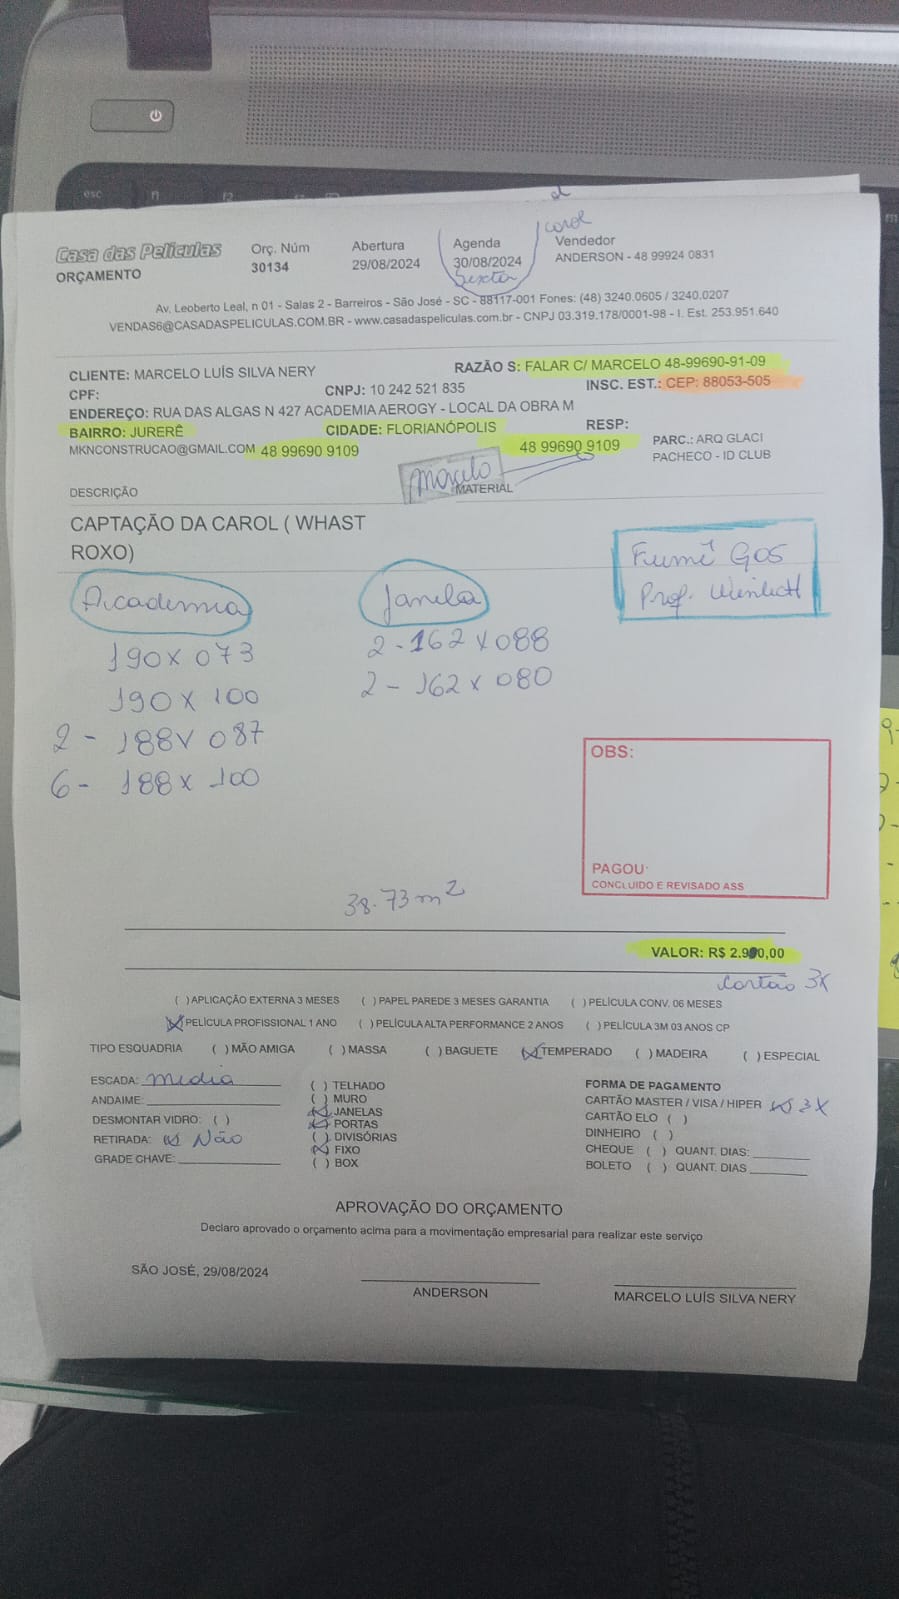 Casa das Películas
ORÇAMENTO
Orç. Núm
30134
Abertura
29/08/2024
Agenda
30/08/2024
Sexta
Carol
Vendedor
ANDERSON - 48 99924 0831
Av. Leoberto Leal, n 01 - Salas 2 - Barreiros - São José - SC - 88117-001 Fones: (48) 3240.0605 / 3240.0207
VENDAS6@CASADASPELICULAS.COM.BR - www.casadaspeliculas.com.br - CNPJ 03.319.178/0001-98 - I. Est. 253.951.640
CLIENTE: MARCELO LUÍS SILVA NERY
RAZÃO S: FALAR C/ MARCELO 48-99690-91-09
CPF:
CNPJ: 10 242 521 835
INSC. EST.: CEP: 88053-505
ENDEREÇO: RUA DAS ALGAS N 427 ACADEMIA AEROGY - LOCAL DA OBRA M
BAIRRO: JURERÊ
CIDADE: FLORIANÓPOLIS
RESP:
MKNCONSTRUCAO@GMAIL.COM 48 99690 9109
48 99690 9109
PARC.: ARQ GLACI
PACHECO - ID CLUB
Marcelo
DESCRIÇÃO
MATERIAL
CAPTAÇÃO DA CAROL ( WHAST
ROXO)
Fumê G05
Prof.
Academia
Janela
190 x 073
2 - 162 x 088
190 x 100
2 - 162 x 080
2 - 188 x 087
6 - 188 x 100
OBS:
PAGOU:
CONCLUIDO E REVISADO ASS
38.73 m2
VALOR: R$ 2.990,00
Cartão 3x
( ) APLICAÇÃO EXTERNA 3 MESES ( ) PAPEL PAREDE 3 MESES GARANTIA ( ) PELÍCULA CONV. 06 MESES
(X) PELÍCULA PROFISSIONAL 1 ANO ( ) PELÍCULA ALTA PERFORMANCE 2 ANOS ( ) PELÍCULA 3M 03 ANOS CP
TIPO ESQUADRIA ( ) MÃO AMIGA ( ) MASSA ( ) BAGUETE (X) TEMPERADO ( ) MADEIRA ( ) ESPECIAL
ESCADA: Media
ANDAIME:
DESMONTAR VIDRO: ( )
RETIRADA: (X) Não
GRADE CHAVE:
( ) TELHADO
( ) MURO
(X) JANELAS
(X) PORTAS
( ) DIVISÓRIAS
(X) FIXO
( ) BOX
FORMA DE PAGAMENTO
CARTÃO MASTER / VISA / HIPER (X) 3X
CARTÃO ELO ( )
DINHEIRO ( )
CHEQUE ( ) QUANT. DIAS:
BOLETO ( ) QUANT. DIAS
APROVAÇÃO DO ORÇAMENTO
Declaro aprovado o orçamento acima para a movimentação empresarial para realizar este serviço
SÃO JOSÉ, 29/08/2024
ANDERSON
MARCELO LUÍS SILVA NERY